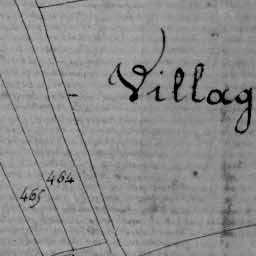 Villag
464
465